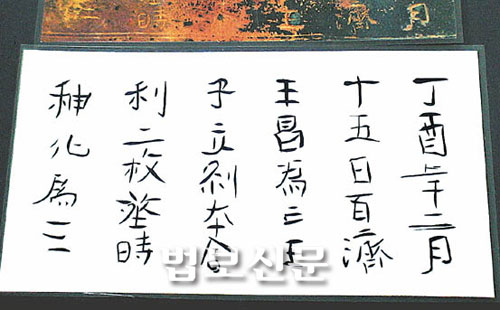 丁酉年二月
十五日百濟
王昌為亡王
子立刹本舍
利二枚葬時
神化爲三
법보신문